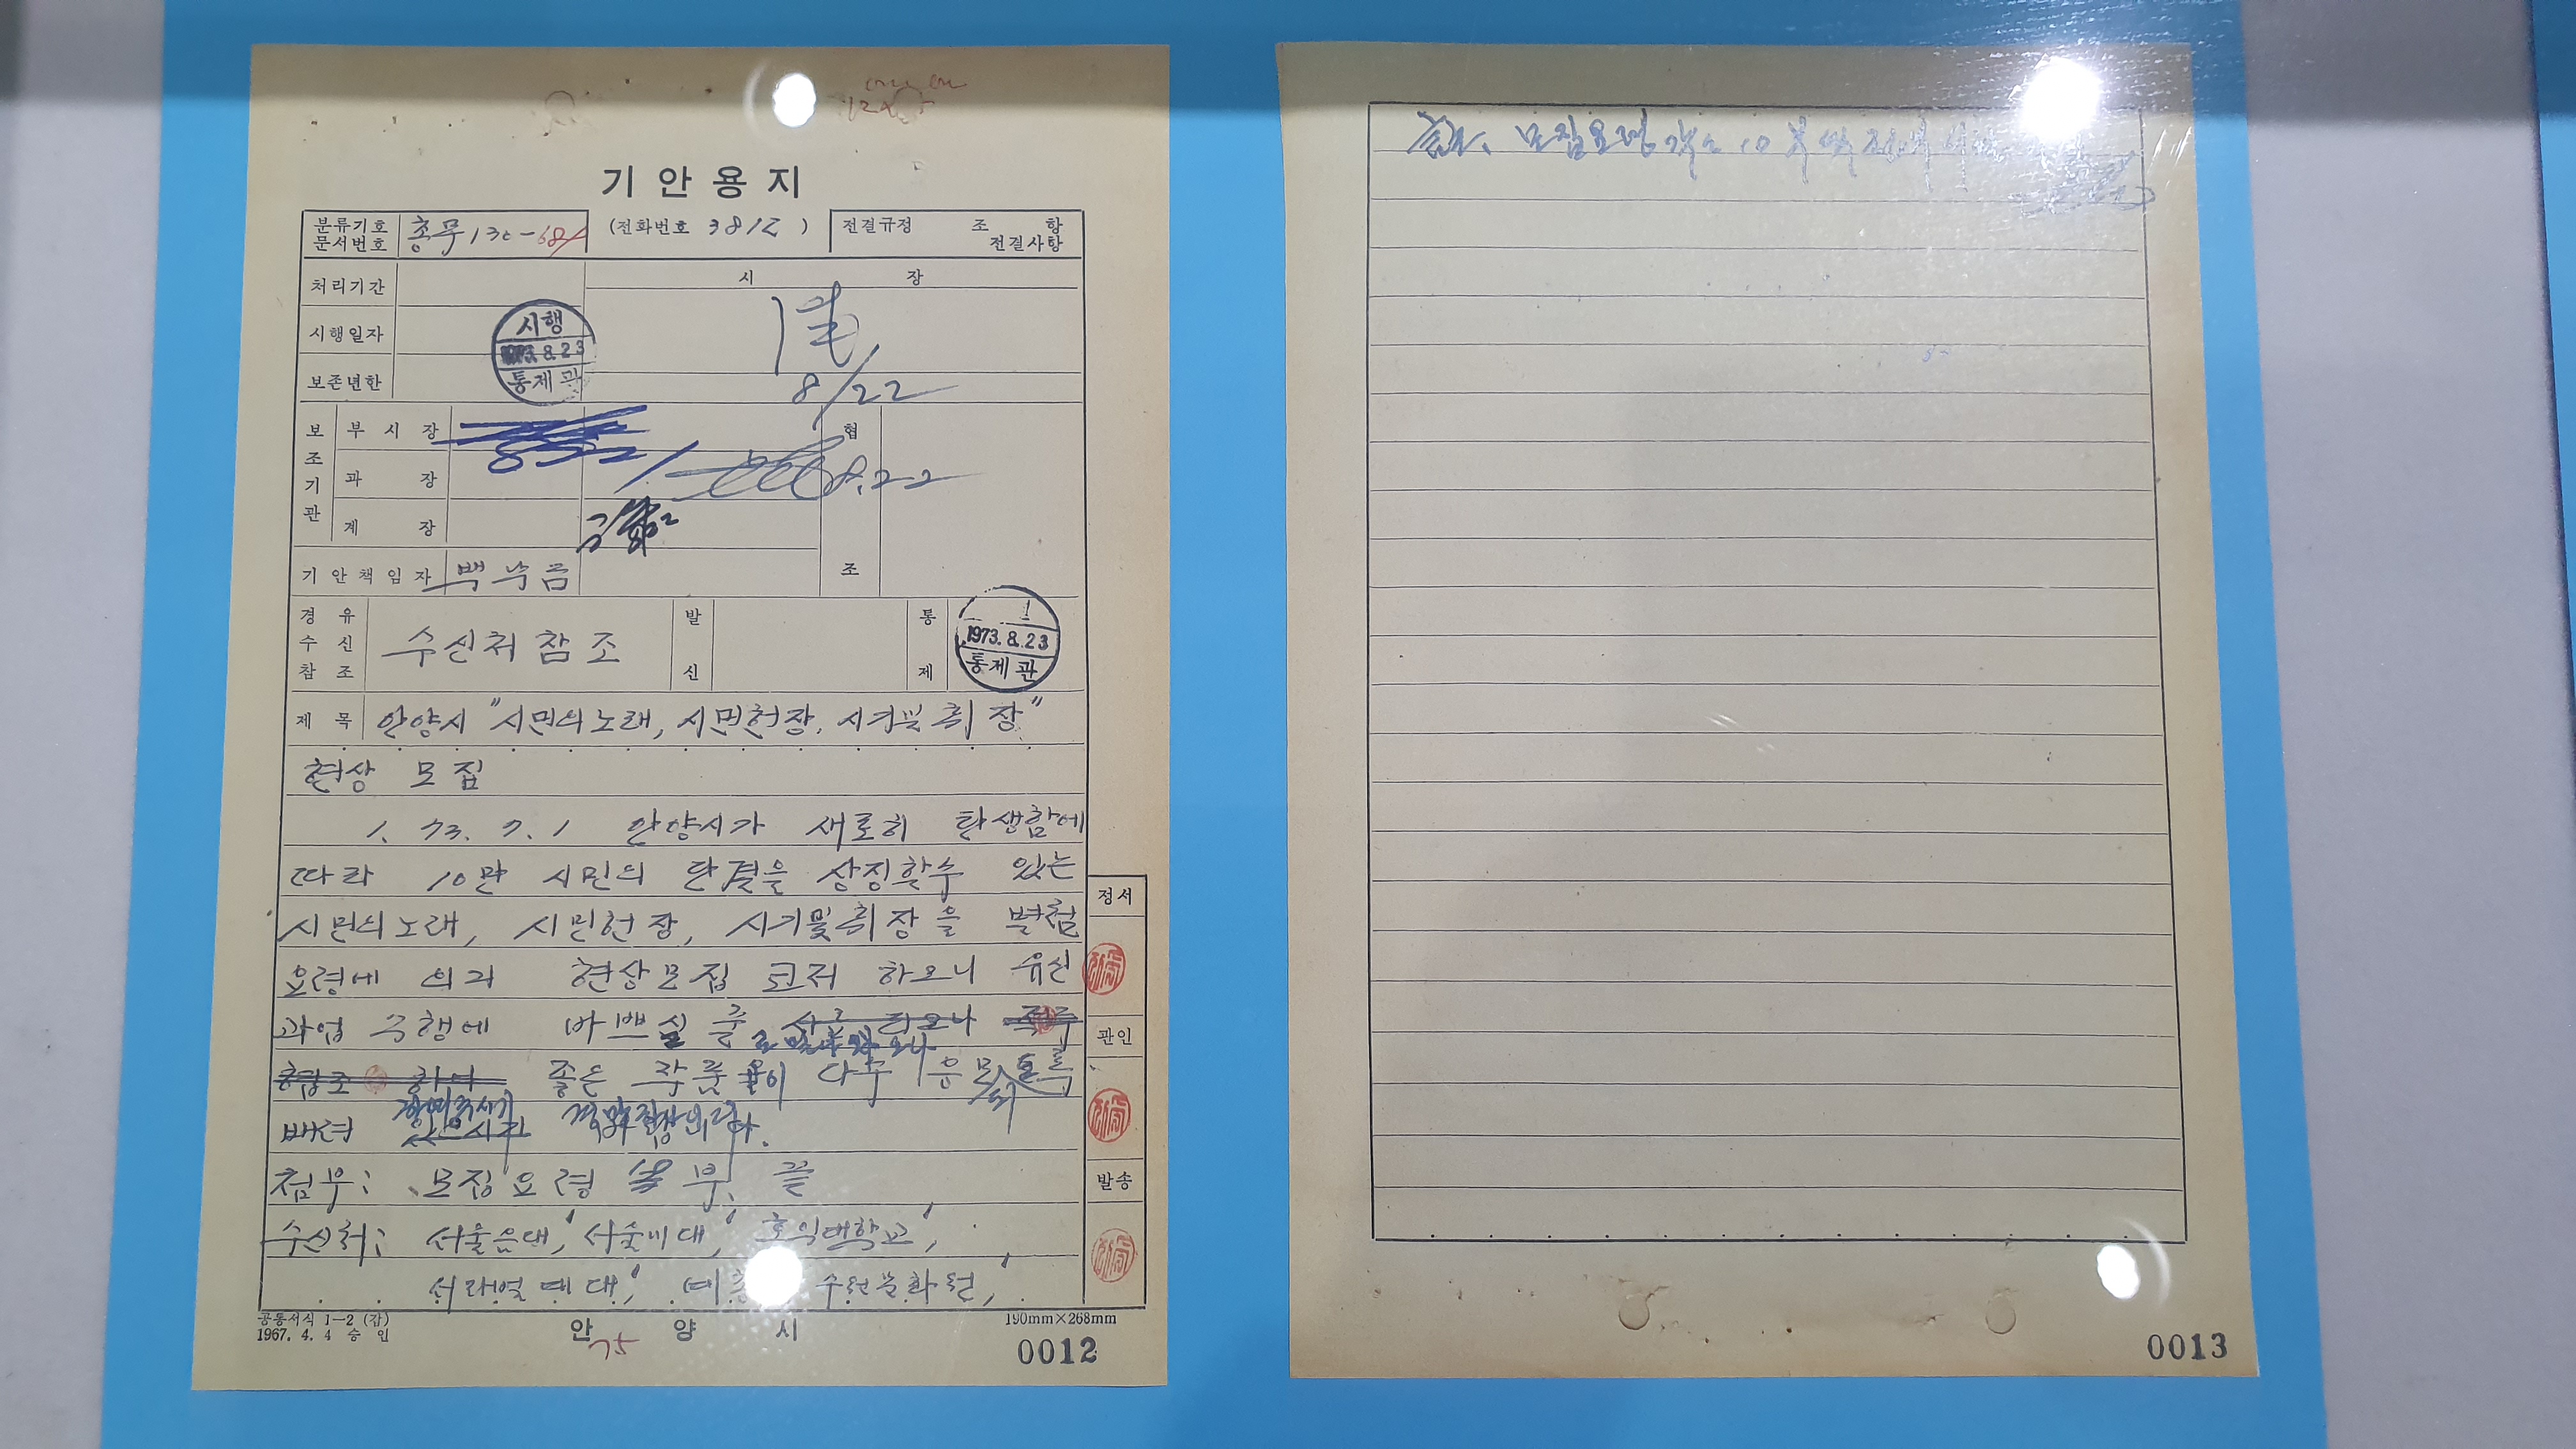 기안용지
분류기호
문서번호
총무 130-
(전화번호 3812 )
전결규정 조 항
전결사항
처리기간
시 장
시행일자
보존년한
시행
1973.8.23
통제관
8/22
보조기관
부시장
과 장
계 장
협조
8.22
기안책임자
경유
수신
참조
수신처참조
발신
통제
1973.8.23
통제관
제 목 안양시 "시민의노래, 시민헌장, 시기및휘장"
현상 모집
1. 73. 7. 1 안양시가 새로히 탄생함에
따라 10만 시민의 단결을 상징할수 있는
시민의노래, 시민헌장, 시기및휘장을 별첨
요령에 의거 현상모집 코저 하오니 유신
과업 수행에 바쁘실 줄
협조 하여 좋은 작품이 다수 응모되도록
배려
첨부: 모집요령 부. 끝
수신처: 서울음대, 서울미대, 홍익대학교,
서라벌예대, 수원문화원,
정서
관인
발송
공통서식 1-2 (갑)
1967. 4. 4 승인
안 양 시
75
190mm×268mm
0012
모집요령 각 10부
0013